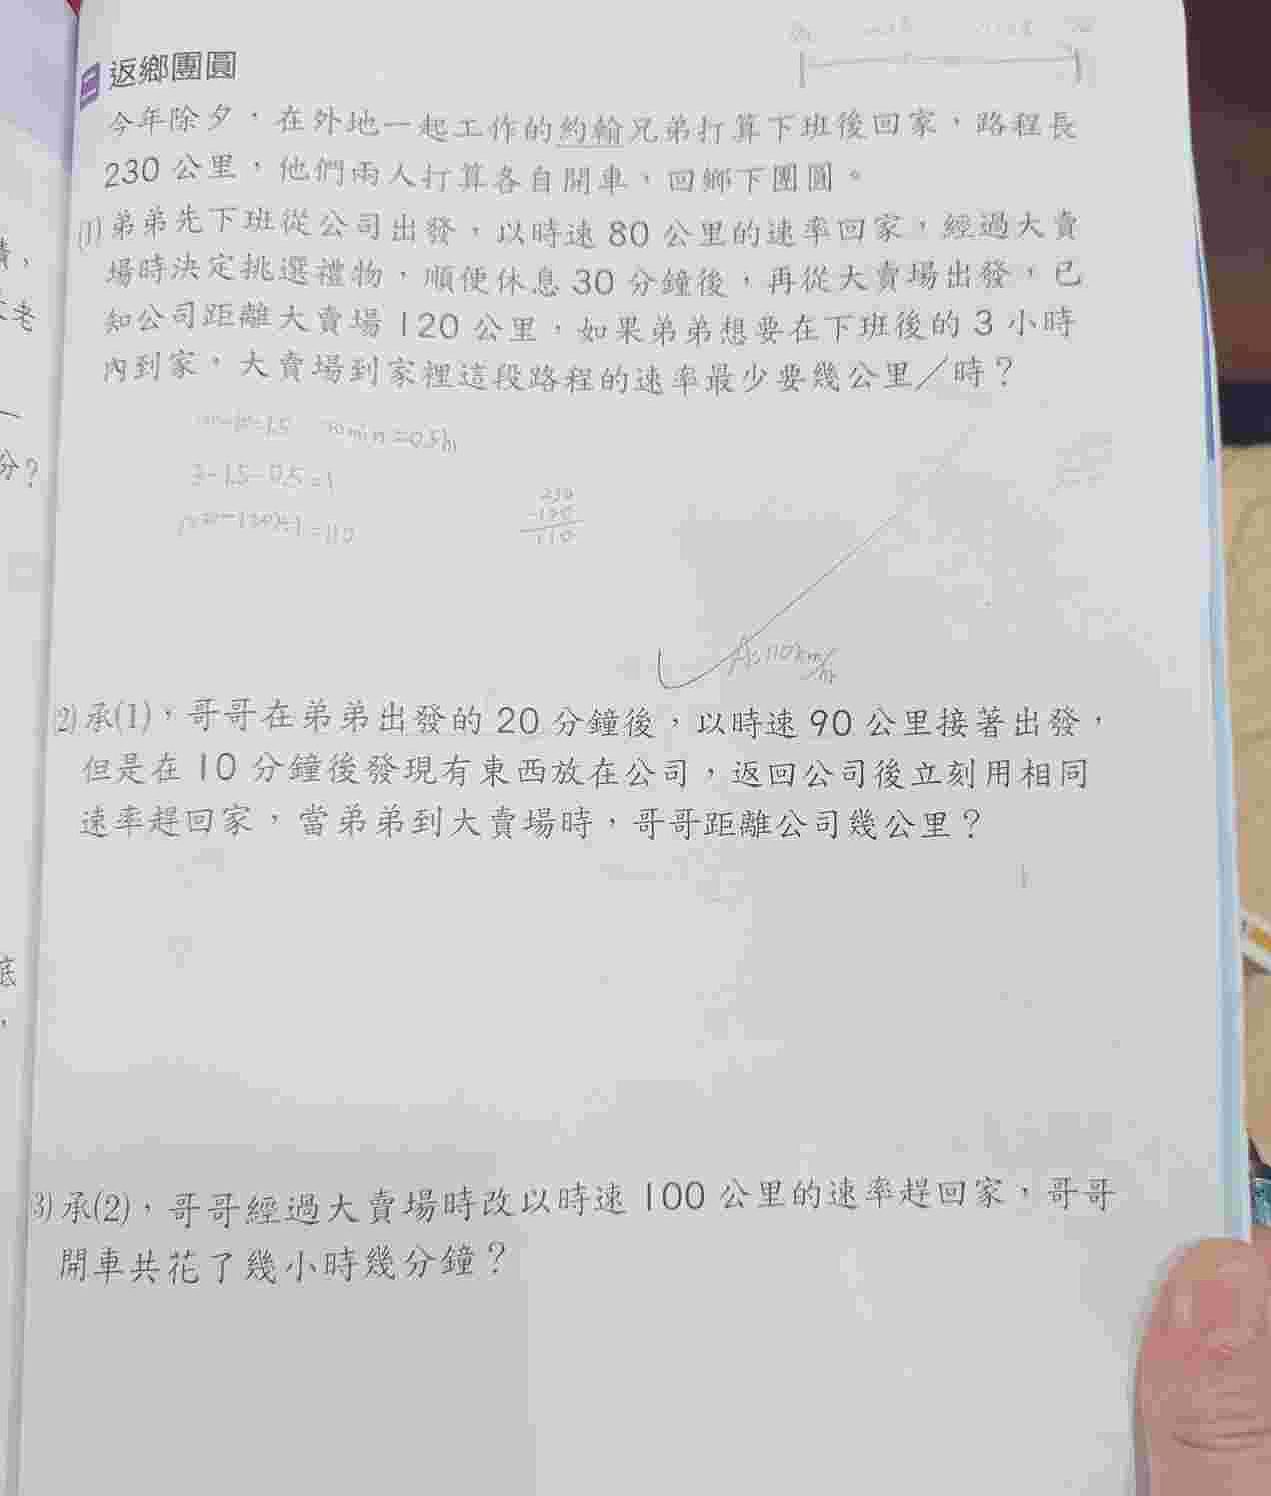 返鄉團圓
今年除夕，在外地一起工作的約翰兄弟打算下班後回家，路程長
230 公里，他們兩人打算各自開車，回鄉下團圓。
(1)弟弟先下班從公司出發，以時速 80 公里的速率回家，經過大賣
場時決定挑選禮物，順便休息 30 分鐘後，再從大賣場出發，已
知公司距離大賣場 120 公里，如果弟弟想要在下班後的 3 小時
內到家，大賣場到家裡這段路程的速率最少要幾公里／時？
30min=0.5hr
3-1.5-0.5=1
(230-120)÷1=110
230
-120
110
A:110km/hr
(2)承(1)，哥哥在弟弟出發的 20 分鐘後，以時速 90 公里接著出發，
但是在 10 分鐘後發現有東西放在公司，返回公司後立刻用相同
速率趕回家，當弟弟到大賣場時，哥哥距離公司幾公里？
(3)承(2)，哥哥經過大賣場時改以時速 100 公里的速率趕回家，哥哥
開車共花了幾小時幾分鐘？
老
一
分？
底
，